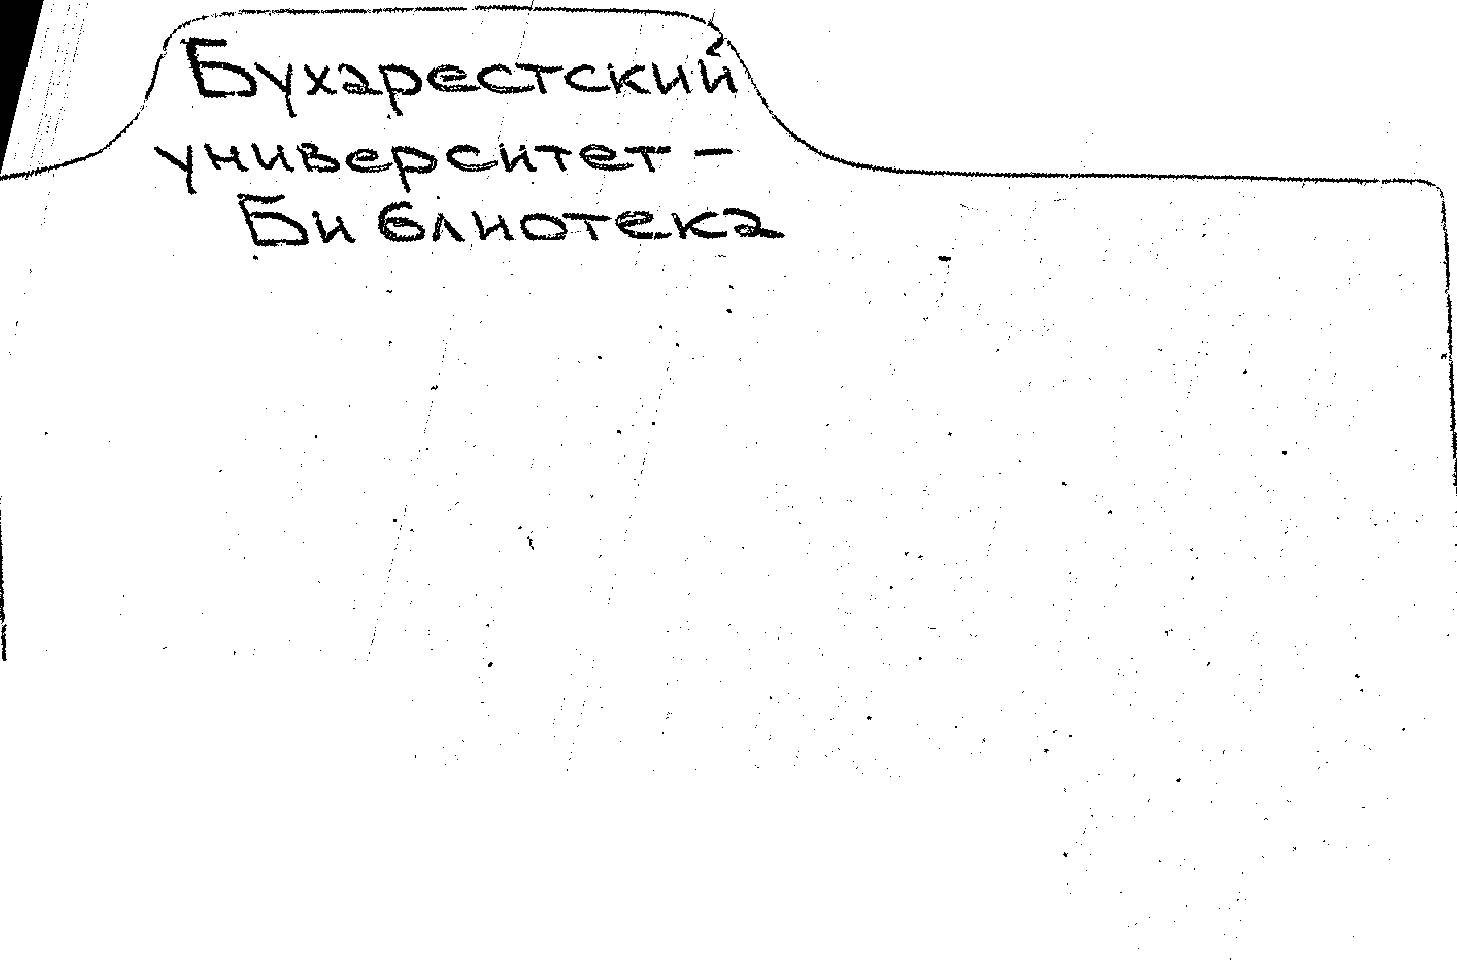 Бухарестский
университет –
Библиотека